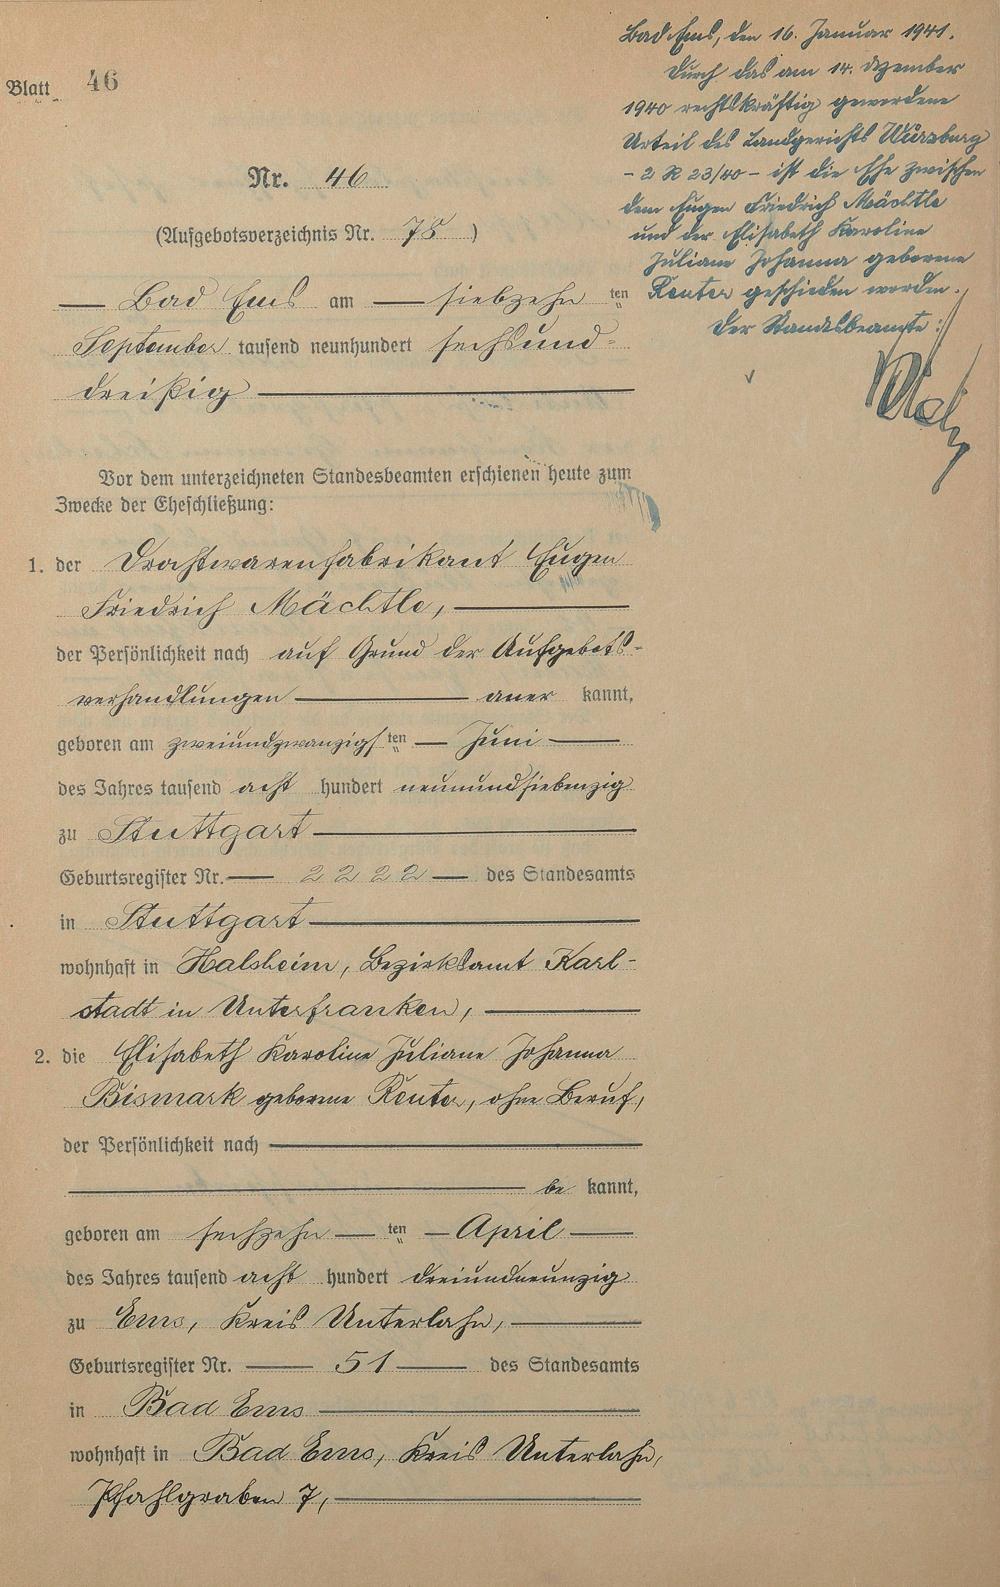 Blatt 46
Nr. 46
(Aufgebotsverzeichnis Nr. 78)
Bad Ems am siebzehn ten
September tausend neunhundert sechsund-
dreißig
Vor dem unterzeichneten Standesbeamten erschienen heute zum
Zwecke der Eheschließung:
1. der Drahtwarenfabrikant Eugen
Friedrich Mächtle,
der Persönlichkeit nach auf Grund der Aufgebots-
verhandlungen aner kannt,
geboren am zweiundzwanzigsten Juni
des Jahres tausend acht hundert neunundsiebenzig
zu Stuttgart
Geburtsregister Nr. 2222 des Standesamts
in Stuttgart
wohnhaft in Halsheim, Bezirksamt Karl-
stadt in Unterfranken,
2. die Elisabeth Karoline Juliane Johanna
Bismark geborene Reuter, ohne Beruf,
der Persönlichkeit nach
be kannt,
geboren am sechzehn ten April
des Jahres tausend acht hundert dreiundneunzig
zu Ems, Kreis Unterlahn,
Geburtsregister Nr. 51 des Standesamts
in Bad Ems
wohnhaft in Bad Ems, Kreis Unterlahn,
Pfahlgraben 7,
Bad Ems, den 16. Januar 1941.
Durch das am 14. Dezember
1940 rechtskräftig gewordene
Urteil des Landgerichts Würzburg
- 2 R 23/40 - ist die Ehe zwischen
dem Eugen Friedrich Mächtle
und der Elisabeth Karoline
Juliane Johanna geborene
Reuter geschieden worden.
Der Standesbeamte: